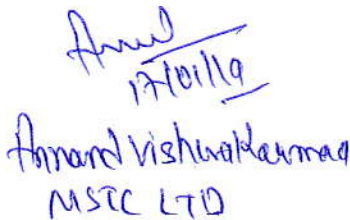 17/01/19
Annand Vishwakarmaa
MSTC LTD